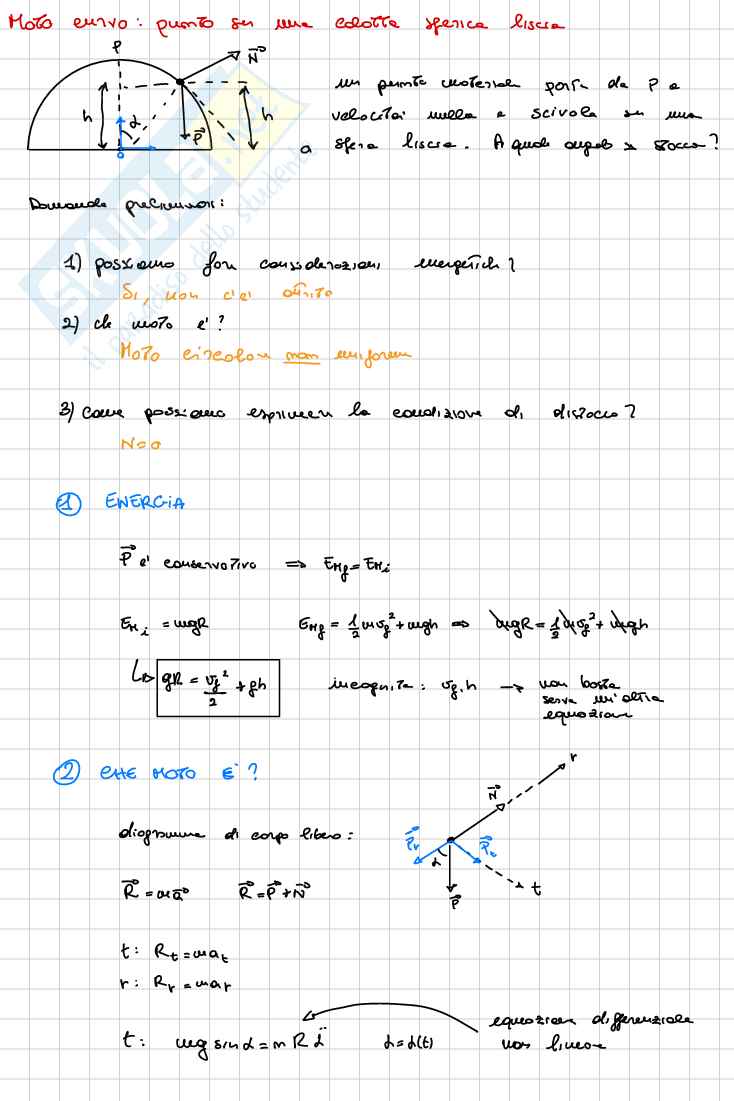 Moto curvo: punto su una calotta sferica liscia
P
N
h
α
P
h
o
un punto materiale parte da P a
velocità nulla e scivola su una
a sfera liscia. A quale angolo si stacca?
Domande preliminari:
1) possiamo fare considerazioni energetiche?
Sì, non c'è attrito
2) che moto è?
Moto circolare non uniforme
3) come possiamo esprimere la condizione di distacco?
N=0
1 ENERGIA
P è conservativo => EMf = EMi
EMi = mgR EMf = 1/2 mvf² + mgh => mgR = 1/2 mvf² + mgh
↳ gR = vf²/2 + gh incognite: vf, h → non basta
serve un'altra
equazione
2 CHE MOTO È?
r
N
diagramma di corpo libero:
Pr
Pt
α
P
t
R = ma R = P + N
t: Rt = mat
r: Rr = mar
equazione differenziale
non lineare
t: mg sinα = m R α̈ α = α(t)
SKUOLA.net
il paradiso dello studente